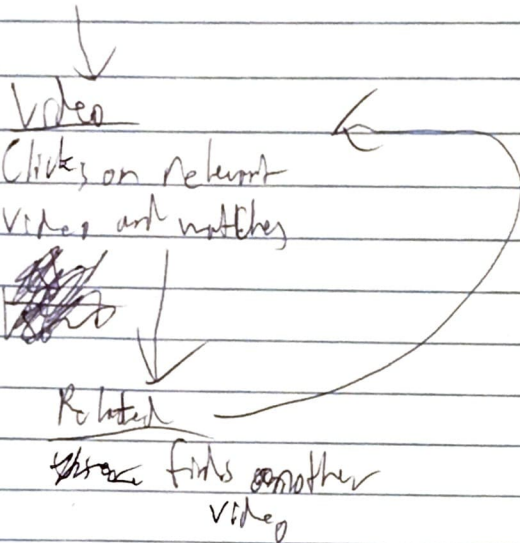 Video
Clicks on relevant
video and watches
Related
finds another
video